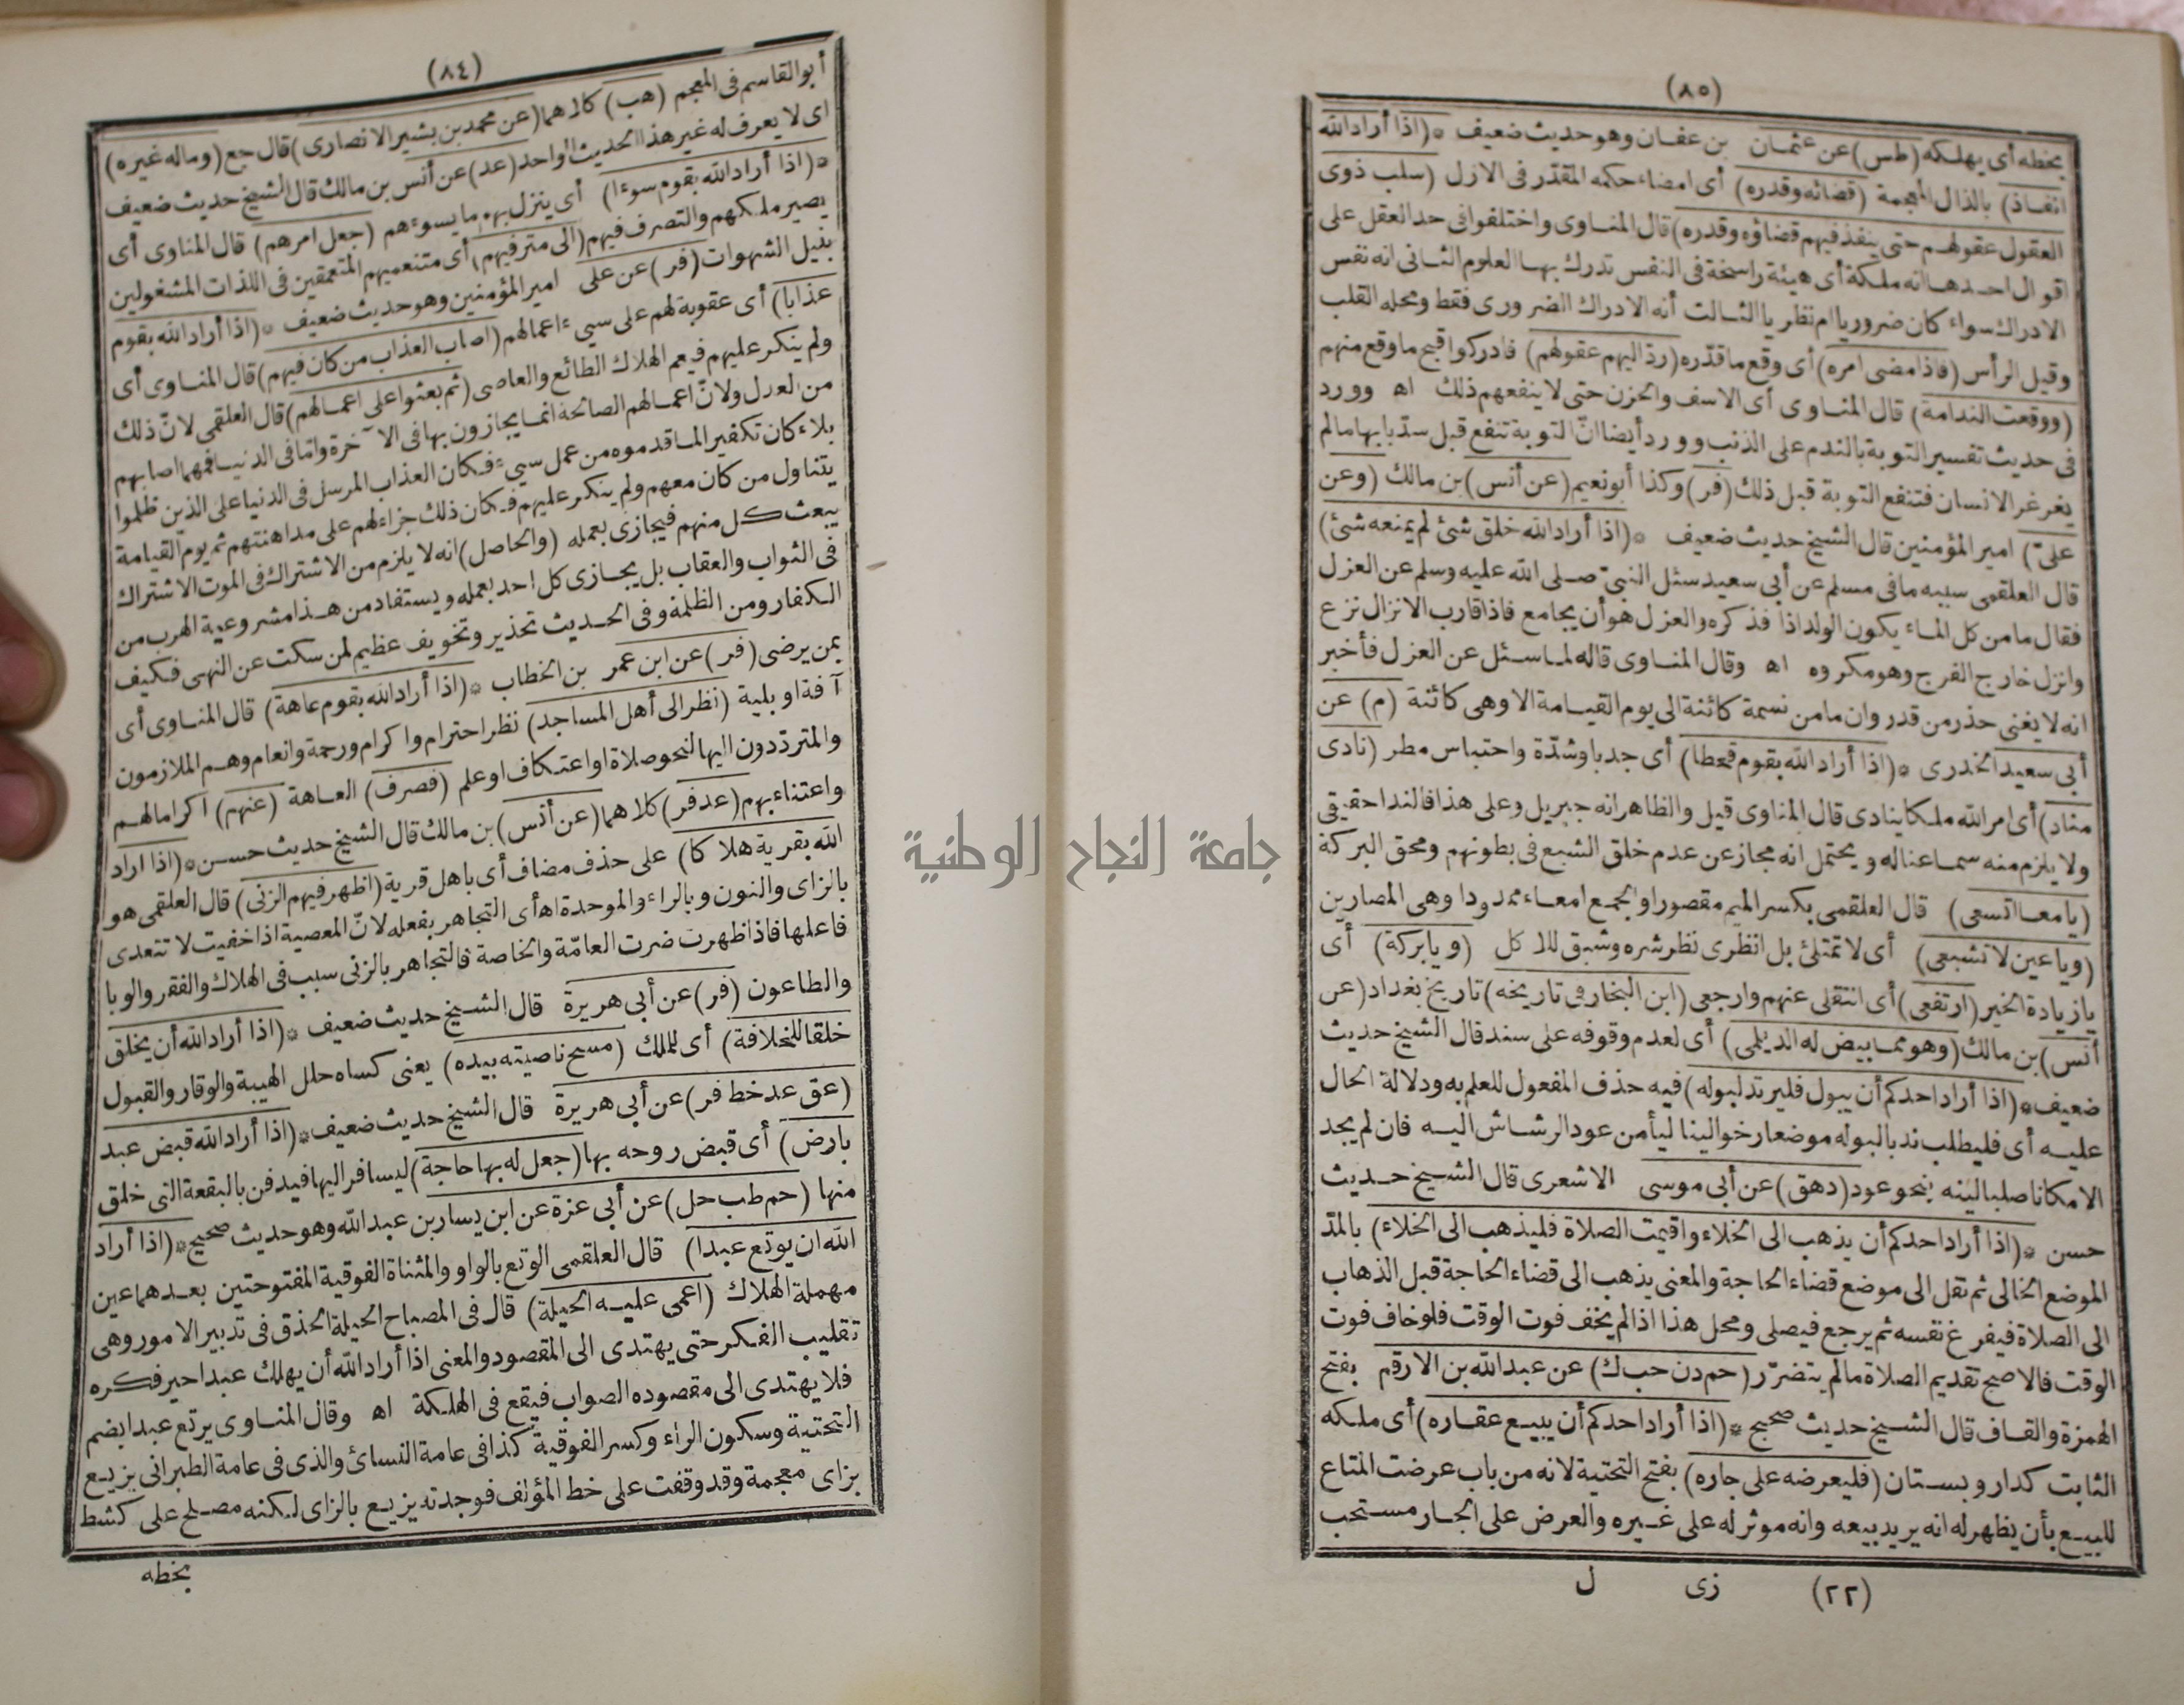 (٨٤)
أبو القاسم فى المعجم (هب) كلاهما (عن محمد بن بشير الانصارى) قال جع (وماله غيره)
اى لا يعرف له غير هذا الحديث الواحد (عد) عن أنس بن مالك قال الشيخ حديث ضعيف
* (اذا أراد الله بقوم سوءا) أى ينزل بهم ما يسوءهم (جعل امرهم) قال المناوى أى
يصير ملكهم والتصرف فيهم (الى مترفيهم) أى متنعميهم المتعمقين فى اللذات المشغولين
بنيل الشهوات (فر) عن على امير المؤمنين وهو حديث ضعيف * (اذا أراد الله بقوم
عذابا) أى عقوبة لهم على سيء اعمالهم (اصاب العذاب من كان فيهم) قال المناوى أى
ولم ينكر عليهم فيعم الهلاك الطائع والعاصى (ثم بعثوا على اعمالهم) قال العلقمى لانّ ذلك
من العدل ولانّ اعمالهم الصالحة انما يجازون بها فى الآخرة واما فى الدنيا فمهما اصابهم
بلاء كان تكفير الما قدموه من عمل سيء فكان العذاب المرسل فى الدنيا على الذين ظلموا
يتناول من كان معهم ولم ينكر عليهم فكان ذلك جزاء لهم على مداهنتهم ثم يوم القيامة
يبعث كل منهم فيجازى بعمله (والحاصل) انه لا يلزم من الاشتراك فى الموت الاشتراك
فى الثواب والعقاب بل يجازى كل احد بعمله ويستفاد من هذا مشروعية الهرب من
الكفار ومن الظلمة وفى الحديث تحذير وتخويف عظيم لمن سكت عن النهى فكيف
بمن يرضى (فر) عن ابن عمر بن الخطاب * (اذا أراد الله بقوم عاهة) قال المناوى أى
آفة او بلية (نظر الى أهل المساجد) نظر احترام واكرام ورحمة وانعام وهم الملازمون
والمتردّدون اليها لنحو صلاة او اعتكاف او علم (فصرف) العاهة (عنهم) اكراما لهم
واعتناء بهم (عد فر) كلاهما (عن أنس) بن مالك قال الشيخ حديث حسن * (اذا اراد
الله بقرية هلاكا) على حذف مضاف أى باهل قرية (اظهر فيهم الزنى) قال العلقمى هو
بالزاى والنون وبالراء والموحدة اه أى التجاهر بفعله لانّ المعصية اذا خفيت لا تتعدى
فاعلها فاذا ظهرت ضرت العامّة والخاصة فالتجاهر بالزنى سبب فى الهلاك والفقر والوبا
والطاعون (فر) عن أبى هريرة قال الشيخ حديث ضعيف * (اذا أراد الله أن يخلق
خلقا للخلافة) أى للملك (مسح ناصيته بيده) يعنى كساه حلل الهيبة والوقار والقبول
(عق عد خط فر) عن أبى هريرة قال الشيخ حديث ضعيف * (اذا أراد الله قبض عبد
بارض) أى قبض روحه بها (جعل له بها حاجة) ليسافر اليها فيدفن بالبقعة التى خلق
منها (حم طب حل) عن أبى عزة عن ابن يسار بن عبد الله وهو حديث صحيح * (اذا أراد
الله ان يوتع عبدا) قال العلقمى الوتع بالواو والمثناة الفوقية المفتوحتين بعدهما عين
مهملة الهلاك (اعمى عليه الحيلة) قال فى المصباح الحيلة الحذق فى تدبير الامور وهى
تقليب الفكر حتى يهتدى الى المقصود والمعنى اذا أراد الله أن يهلك عبدا حير فكره
فلا يهتدى الى مقصوده الصواب فيقع فى الهلكة اه وقال المناوى يرتع عبدا بضم
التحتية وسكون الراء وكسر الفوقية كذا فى عامة النسائ والذى فى عامة الطبرانى يزيع
بزاى معجمة وقد وقفت على خط المؤلف فوجدته يزيع بالزاى لكنه مصلح على كشط
بخطه
(٨٥)
بخطه أى يهلكه (طس) عن عثمان بن عفان وهو حديث ضعيف * (اذا أراد الله
انفاذ) بالذال المعجمة (قضائه وقدره) أى امضاء حكمه المقدّر فى الازل (سلب ذوى
العقول عقولهم حتى ينفذ فيهم قضاؤه وقدره) قال المناوى واختلفوا فى حد العقل على
اقوال احدها انه ملكة أى هيئة راسخة فى النفس تدرك بها العلوم الثانى انه نفس
الادراك سواء كان ضروريا ام نظريا الثالث أنه الادراك الضرورى فقط ومحله القلب
وقيل الرأس (فاذا مضى امره) أى وقع ما قدّره (ردّ اليهم عقولهم) فادركوا قبح ما وقع منهم
(ووقعت الندامة) قال المناوى أى الاسف والحزن حتى لا ينفعهم ذلك اه وورد
فى حديث تفسير التوبة بالندم على الذنب وورد أيضا انّ التوبة تنفع قبل سدّ بابها ما لم
يغرغر الانسان فتنفع التوبة قبل ذلك (فر) وكذا أبو نعيم (عن أنس) بن مالك (وعن
علىّ) امير المؤمنين قال الشيخ حديث ضعيف * (اذا أراد الله خلق شئ لم يمنعه شئ)
قال العلقمى سببه ما فى مسلم عن أبى سعيد سئل النبىّ صلى الله عليه وسلم عن العزل
فقال ما من كل الماء يكون الولد اذا فذكره والعزل هو أن يجامع فاذا قارب الانزال نزع
وانزل خارج الفرج وهو مكروه اه وقال المناوى قاله لما سئل عن العزل فأخبر
انه لا يغنى حذر من قدر وان ما من نسمة كائنة الى يوم القيامة الا وهى كائنة (م) عن
أبى سعيد الخدرى * (اذا أراد الله بقوم قحطا) أى جدبا وشدّة واحتباس مطر (نادى
مناد) أى امر الله ملكا ينادى قال المناوى قيل والظاهر انه جبريل وعلى هذا فالندا حقيقى
ولا يلزم منه سماعنا له ويحتمل انه مجاز عن عدم خلق الشبع فى بطونهم ومحق البركة
(يا معا اتسعى) قال العلقمى بكسر الميم مقصورا والجمع امعاء ممدودا وهى المصارين
(ويا عين لا تشبعى) أى لا تمتلئ بل انظرى نظر شره وشبق للاكل (ويا بركة) أى
يا زيادة الخير (ارتفعى) أى انتقلى عنهم وارجعى (ابن النجار فى تاريخه) تاريخ بغداد (عن
أنس) بن مالك (وهو مما بيض له الديلمى) أى لعدم وقوفه على سند قال الشيخ حديث
ضعيف * (اذا أراد احدكم أن يبول فليرتد لبوله) فيه حذف المفعول للعلم به ودلالة الحال
عليه أى فليطلب ندبا لبوله موضعا رخوا لينا ليأمن عود الرشاش اليه فان لم يجد
الا مكانا صلبا لينه بنحو عود (د هق) عن أبى موسى الاشعرى قال الشيخ حديث
حسن * (اذا أراد احدكم أن يذهب الى الخلاء واقيمت الصلاة فليذهب الى الخلاء) بالمدّ
الموضع الخالى ثم نقل الى موضع قضاء الحاجة والمعنى يذهب الى قضاء الحاجة قبل الذهاب
الى الصلاة فيفرغ نفسه ثم يرجع فيصلى ومحل هذا اذا لم يخف فوت الوقت فلو خاف فوت
الوقت فالاصح تقديم الصلاة ما لم يتضرّر (حم د ن حب ك) عن عبد الله بن الارقم بفتح
الهمزة والقاف قال الشيخ حديث صحيح * (اذا أراد احدكم أن يبيع عقاره) أى ملكه
الثابت كدار وبستان (فليعرضه على جاره) بفتح التحتية لانه من باب عرضت المتاع
للبيع بأن يظهر له انه يريد بيعه وانه موثر له على غيره والعرض على الجار مستحب
(٢٢) زى ل
جامعة النجاح الوطنية